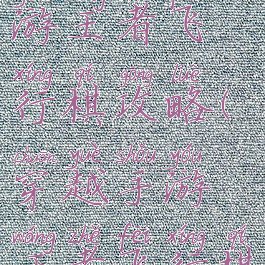 游王者飞
xíng qí gōng lüè
行棋攻略(
chuān yuè shǒu yóu
穿越手游
wáng zhě fēi xíng qí